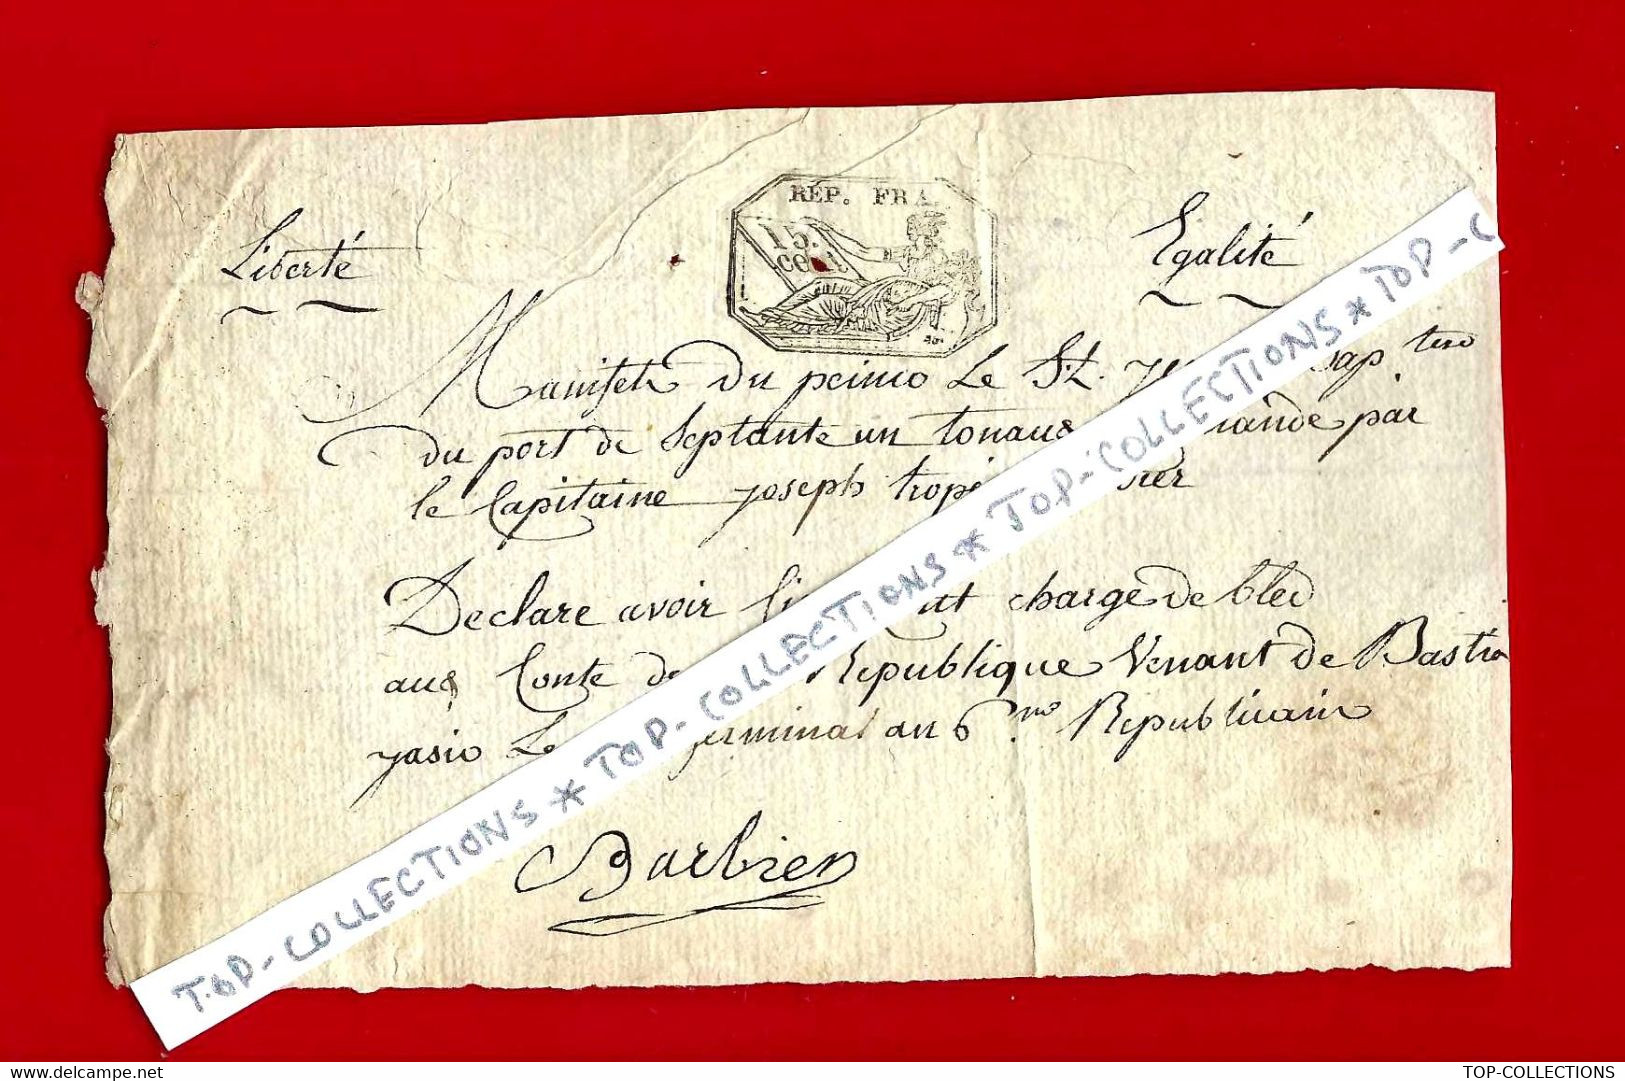 REP. FRA.
15.
cent
Liberté
Egalité
Manifeste du peinco Le St.
du port de Septante un tonaux mande par
le Capitaine Joseph
Declare avoir charge de bled
aux Conte de Republique Venant de Bastia
Le germinal an 6me Republicain
Barbier
TOP-COLLECTIONS * TOP-COLLECTIONS * TOP-COLLECTIONS * TOP-COLLECTIONS * TOP-C
TOP-COLLECTIONS